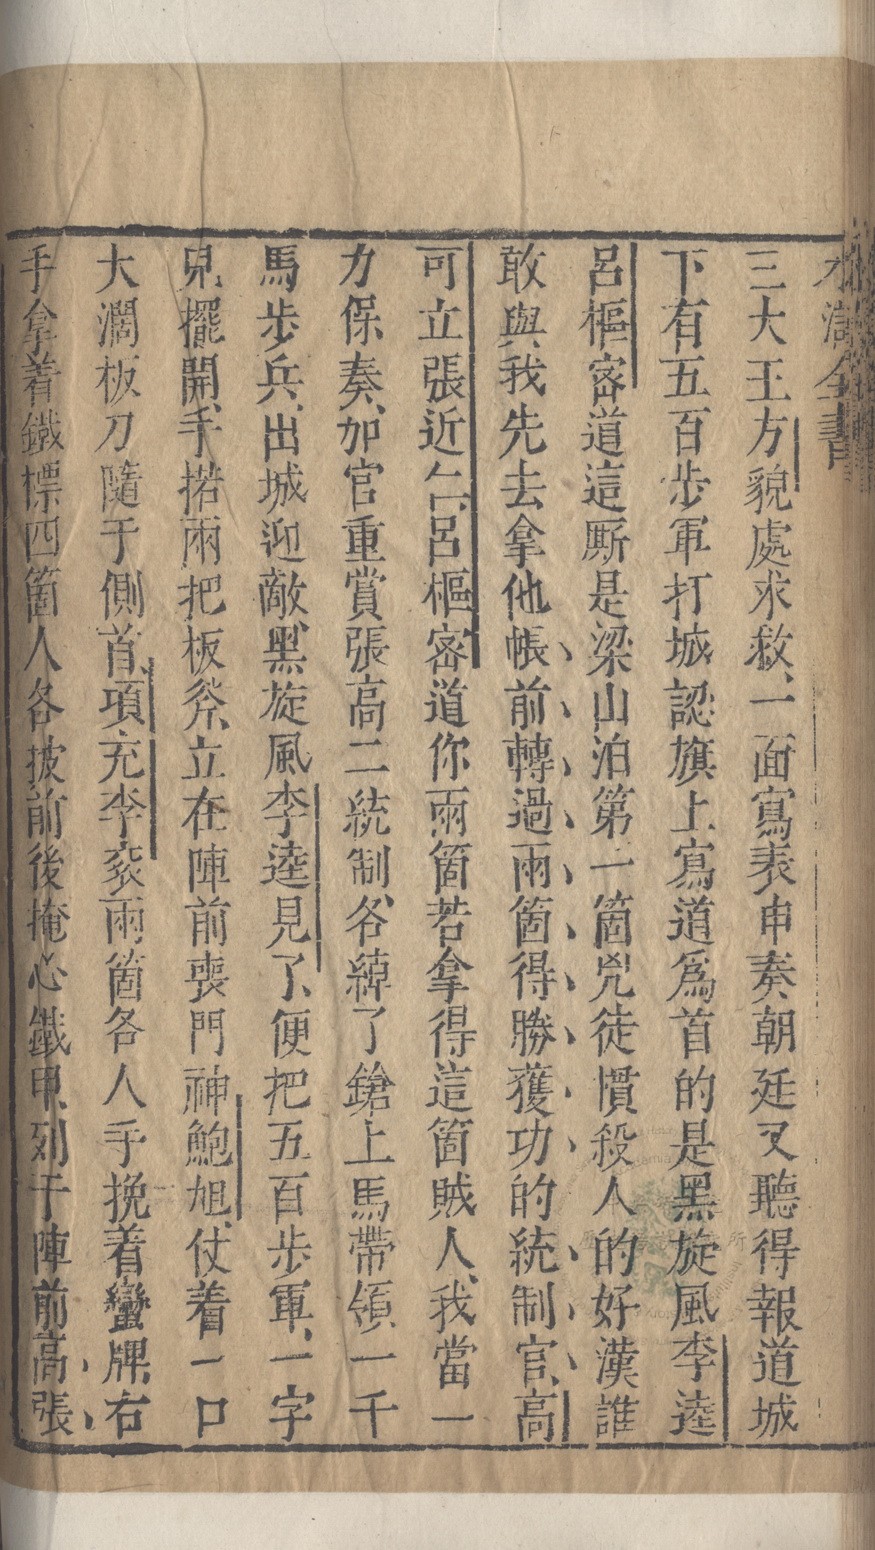 水滸全書
三大王方貌處求救、一面寫表申奏朝廷又聽得報道城
下有五百步軍打城認旗上寫道爲首的是黑旋風李逵
呂樞密道這厮是梁山泊第一箇兇徒慣殺人的好漢誰
敢與我先去拿他帳前轉過兩箇得勝獲功的統制官、高
可立張近仁、呂樞密道你兩箇若拿得這箇賊人、我當一
力保奏、加官重賞張高二統制、各綽了鎗上馬帶領一千
馬步兵、出城迎敵、黑旋風李逵見了、便把五百步軍、一字
兒擺開、手搭兩把板斧、立在陣前喪門神鮑旭、仗着一口
大濶板刀隨于側首、項充李袞兩箇各人手挽着蠻牌、右
手拿着鐵標四箇人各披前後掩心鐵甲、列于陣前高張